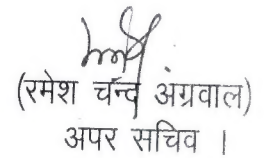 (रमेश चन्द अंग्रवाल)
अपर सचिव ।